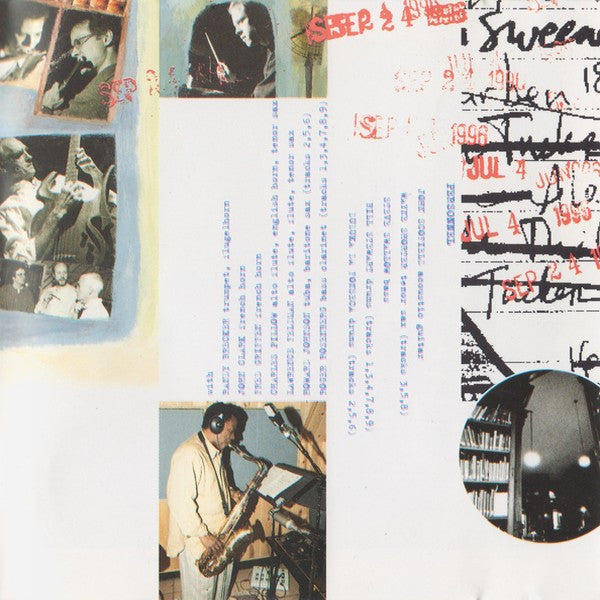 PERSONNEL
JOHN SCOFIELD acoustic guitar
WAYNE SHORTER tenor sax (tracks 3,5,8)
STEVE SWALLOW bass
BILL STEWART drums (tracks 1,3,4,7,8,9)
DUDUKA DA FONSECA drums (tracks 2,5,6)
with
RANDY BRECKER trumpet, flugelhorn
JOHN CLARK french horn
FRED GRIFFEN french horn
CHARLES PILLOW alto flute, english horn, tenor sax
LAWRENCE FELDMAN alto flute, flute, tenor sax
HOWARD JOHNSON tuba, baritone sax (tracks 2,5,6)
ROGER ROSENBERG bass clarinet (tracks 1,3,4,7,8,9)
SEP 2 4
SEP 2
1996
JUL 4
JUL 4 1996
SEP 2 4